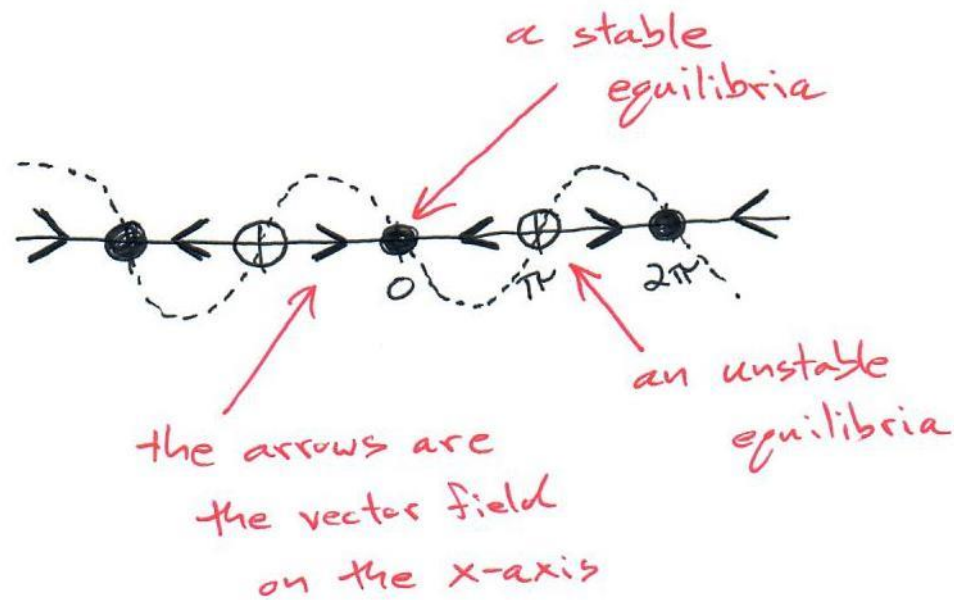 a stable
equilibria
0
π
2π
an unstable
equilibria
the arrows are
the vector field
on the x-axis